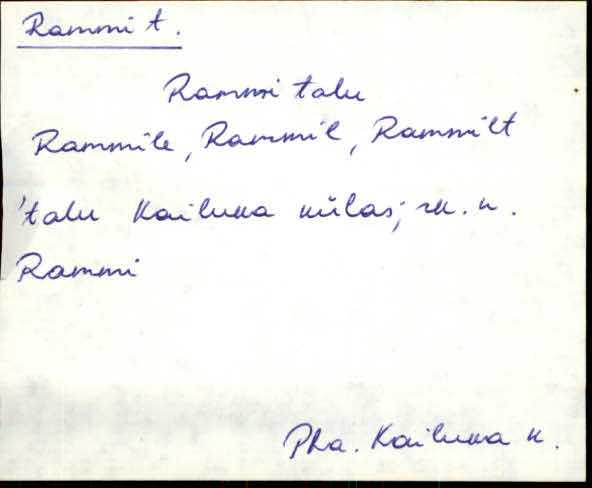 Rammi t.
Rammi talu
Rammile, Rammil, Rammilt
'talu Kailuka külas; rk. n.
Rammi
Pha. Kailuka k.